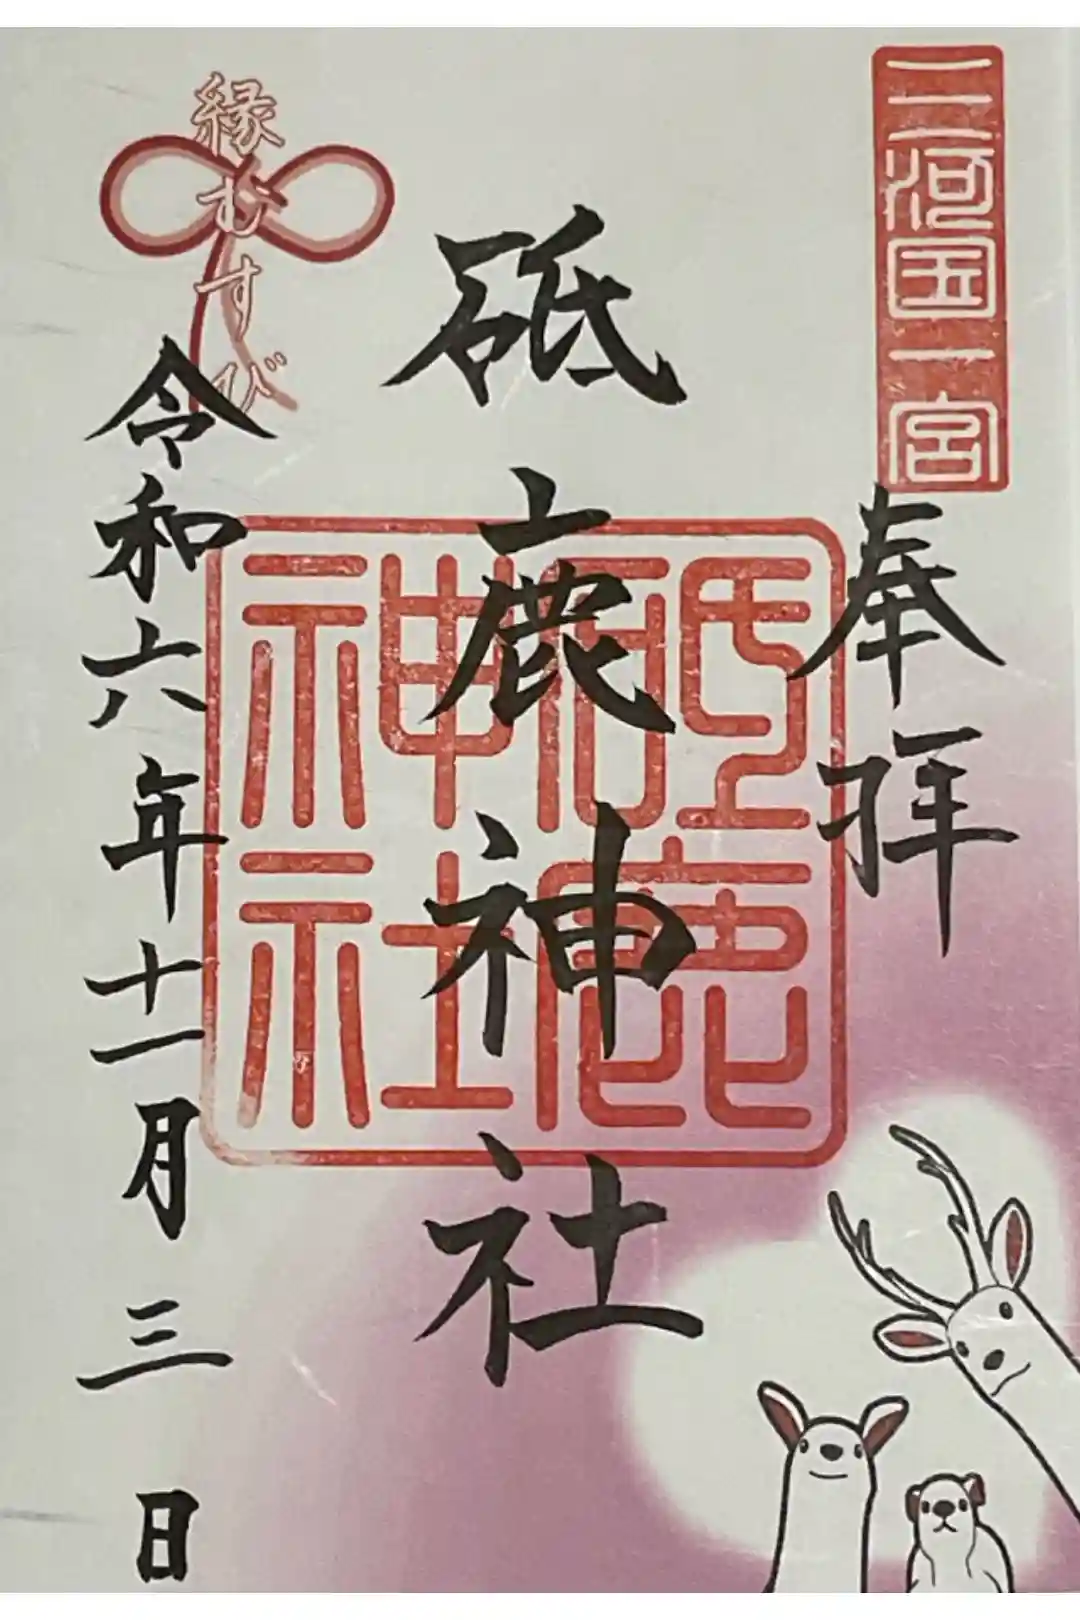 三河国一宮
奉拝
砥鹿神社
砥鹿
神社
縁むすび
令和六年十一月三日